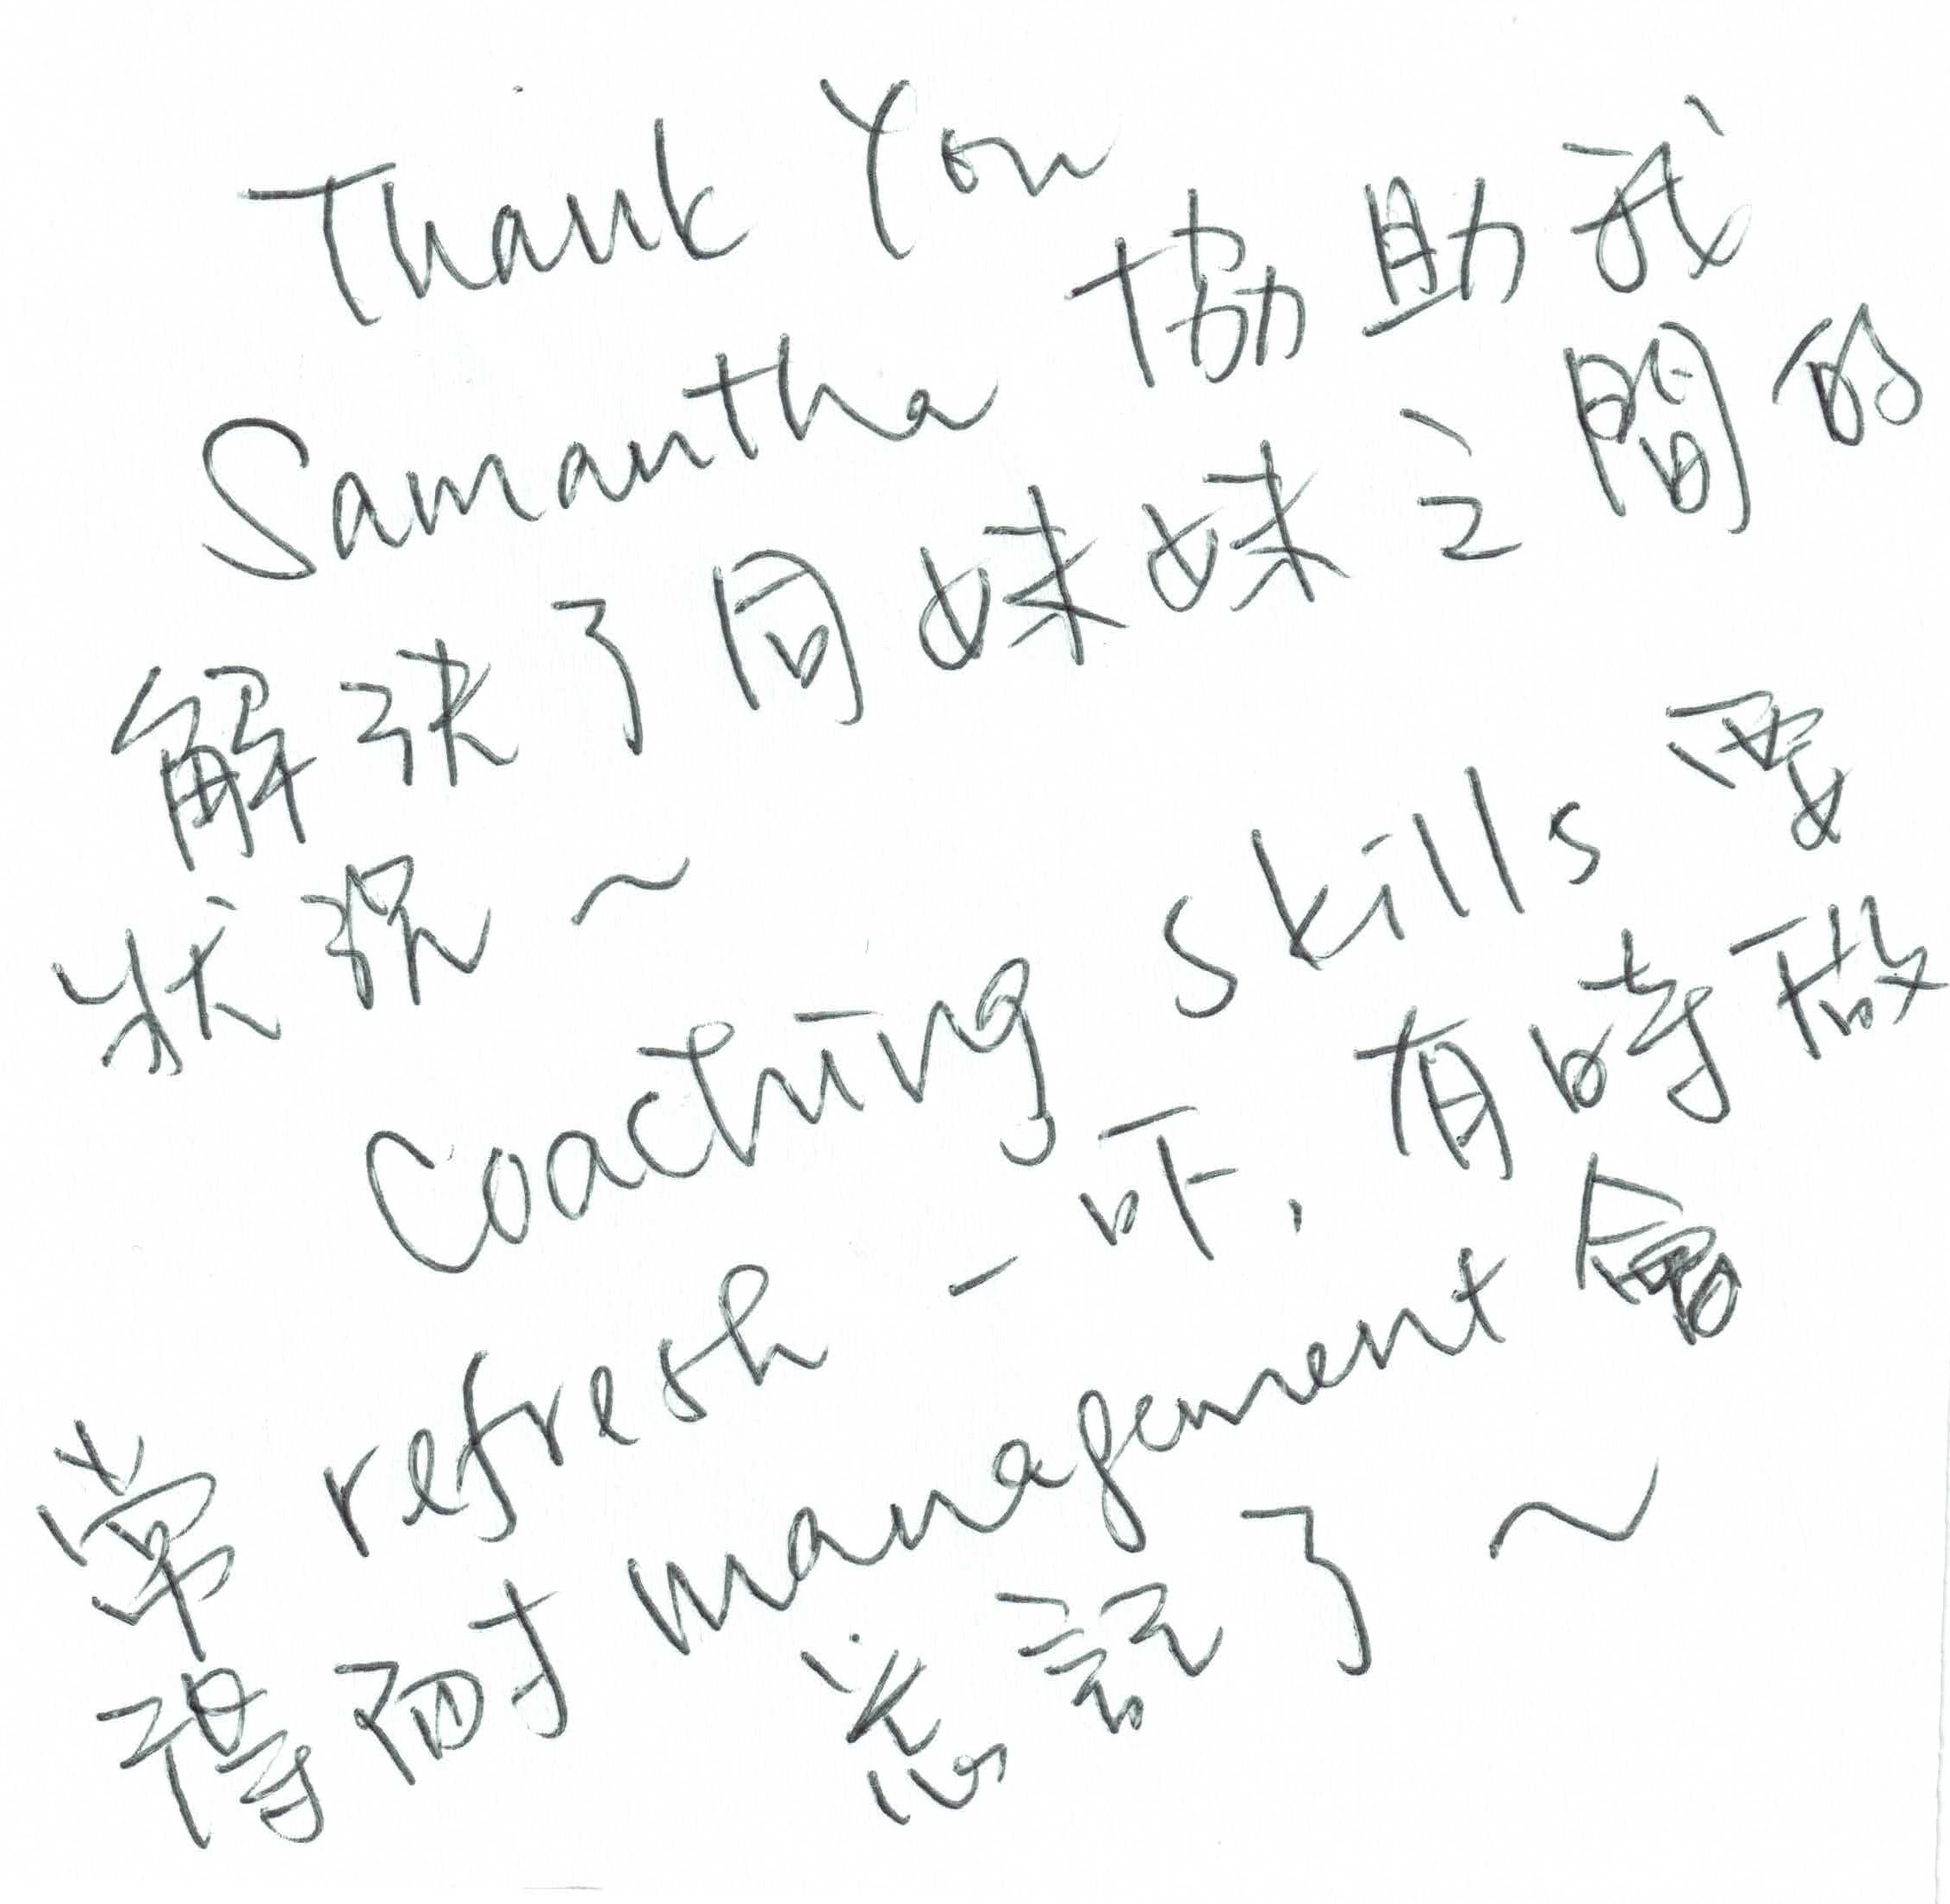 Thank You
Samantha 協助我
解決了同妹妹之間的
狀況～
Coaching skills 要
常 refresh 一吓, 有時做
得耐 management 會
忘記了～